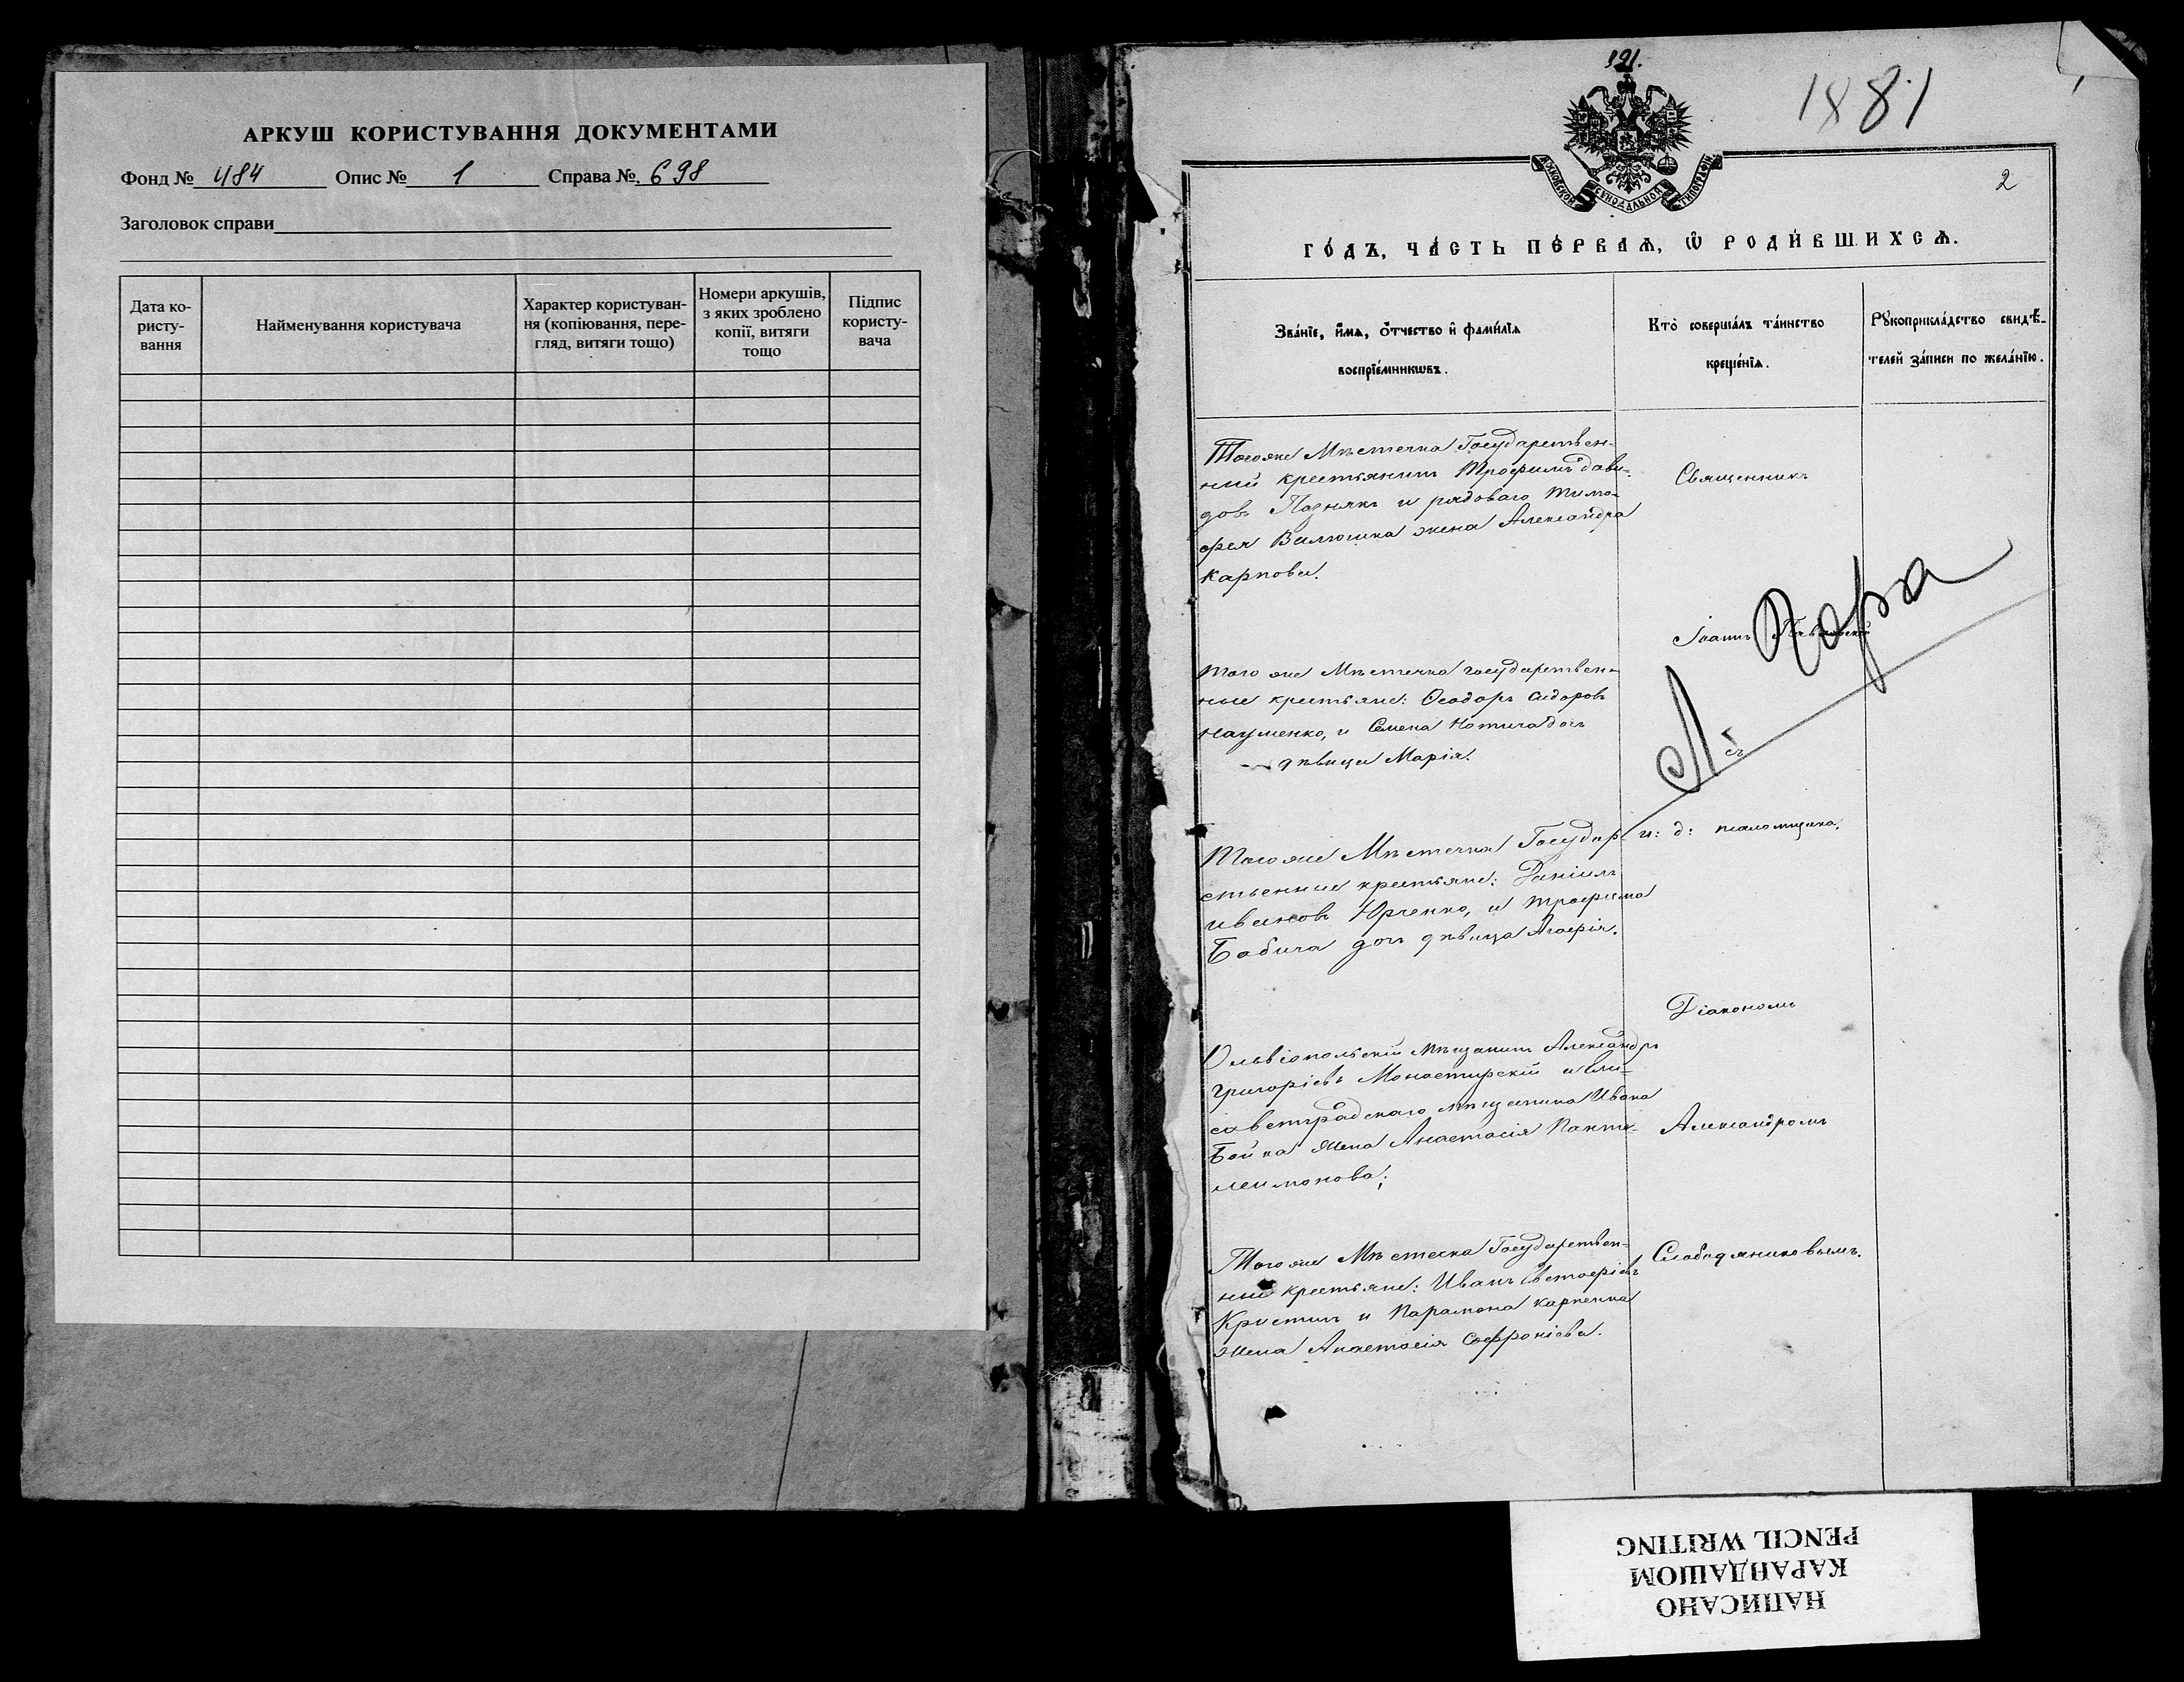 АРКУШ КОРИСТУВАННЯ ДОКУМЕНТАМИ
Фонд № 484 Опис № 1 Справа № 698
Заголовок справи
Дата ко-
ристу-
вання
Найменування користувача
Характер користуван-
ня (копіювання, пере-
гляд, витяги тощо)
Номери аркушів,
з яких зроблено
копії, витяги
тощо
Підпис
користу-
вача
1881
МОСКОВСКОЙ СѴНОДАЛЬНОЙ ТИПОГРАФІИ
2
ГО́ДЪ, ЧА́СТЬ ПЕ́РВАѦ, Ѿ РОДИ́ВШИХСѦ.
Зва́нїе, и҆́мѧ, ѻ҆́тчество и҆ фами́лїѧ
воспрїе́мникѡвъ.
Кто̀ соверша́лъ та́инство
креще́нїѧ.
Рꙋкоприкла́дство свидѣ́-
телей за́писи по жела́нїю.
Тогоже Мѣстечка Государствен-
ний крестьянинъ Трофимъ Дави-
довъ Позднякъ и рядоваго Тимо-
фея жена Александра
Карпова.
Священникъ
Іоаннъ
Л. Пора
того же Мѣстечка государствен-
ные крестьяне: Ѳеодоръ Сидоровъ
Науменко, и Семена дочь
дѣвица Марія.
съ
Того же Мѣстечка Государ-
ственние крестьяне: Даніилъ
Ивановъ Юрченко, и Трофима
Бабича дочь дѣвица Агафія.
и: д: псаломщика,
Діакономъ
Ольвіопольскій мѣщанинъ Александръ
Григоріевъ Монастирскій и Ели-
саветградскаго мѣщанина Ивана
Бойка жена Анастасія Панте-
леимонова;
Александромъ
Того же Мѣстечка Государствен-
ние крестьяне: Иванъ Евстафіевъ
и Парамона Карпенка
жена Анастасія Софроніева.
Слободяниковымъ.
НАПИСАНО
КАРАНДАШОМ
PENCIL WRITING